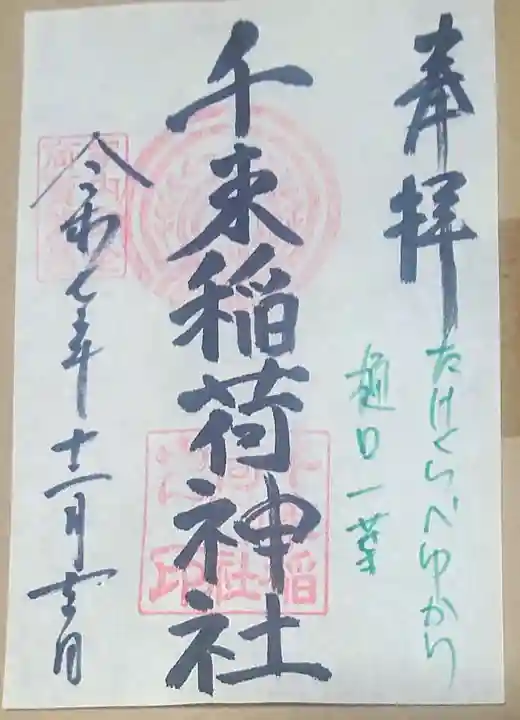 奉拝
たけくらべゆかり
樋口一葉
千束稲荷神社
令和七年十二月吉日